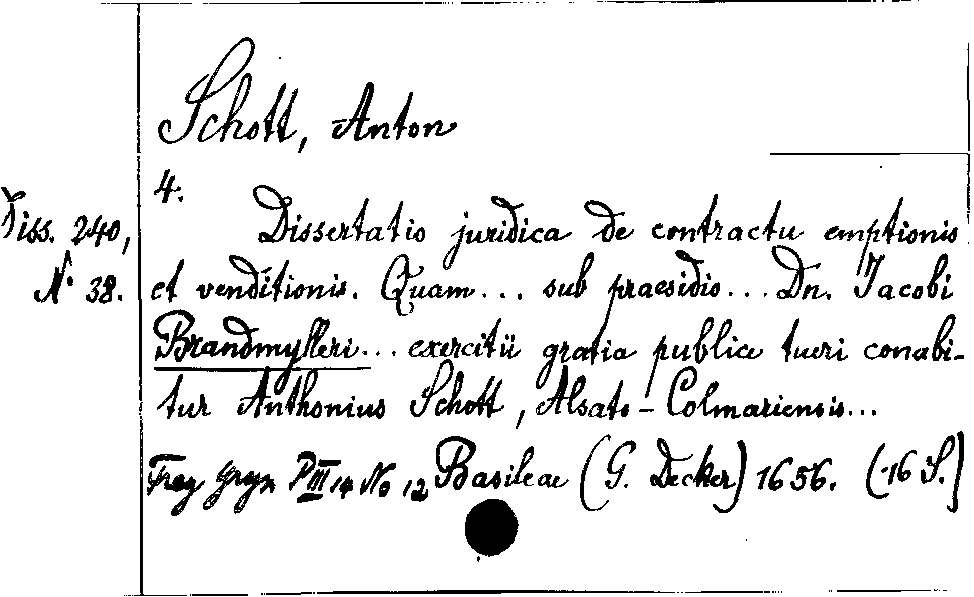 Schott, Anton
4.
Diss. 240,
No 38.
Dissertatio juridica de contractu emptionis
et venditionis. Quam... sub praesidio... Dn. Jacobi
Brandmylleri... exercitii gratia publice tueri conabi-
tur Anthonius Schott, Alsato-Colmariensis...
Frey Gryn P III 14 No 12 Basileae (G. Decker) 1656. (16 S.)